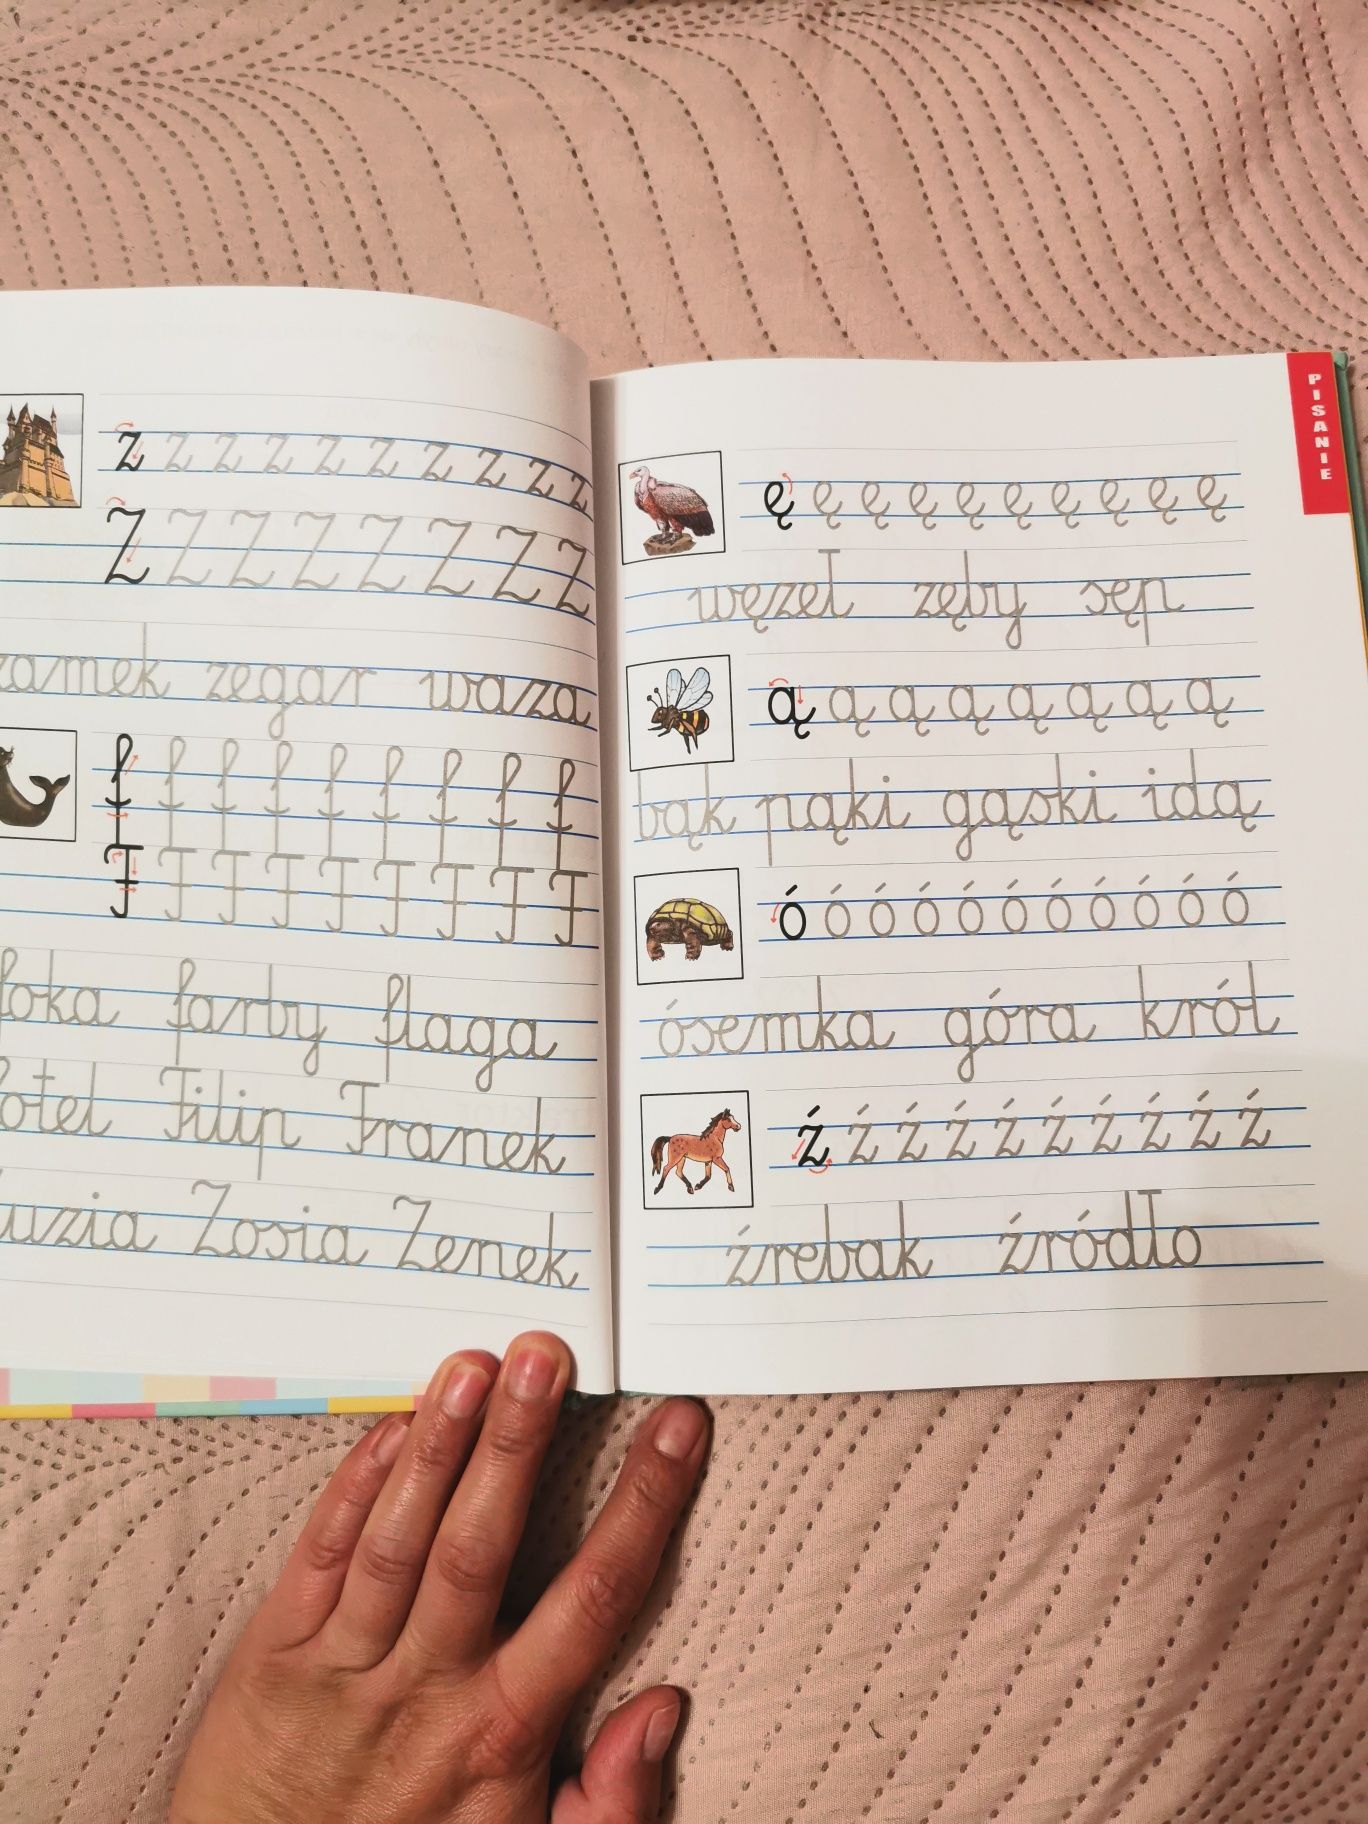 z z z z z z z z z z
Z Z Z Z Z Z Z Z
zamek zegar waza
f f f f f f f f f
F F F F F F F F F
foka farby flaga
fotel Filip Franek
Zuzia Zosia Zenek
PISANIE
ę ę ę ę ę ę ę ę ę ę
węzeł zęby sęp
ą ą ą ą ą ą ą ą
bąk pąki gąski idą
ó ó ó ó ó ó ó ó ó ó ó
ósemka góra król
ź ź ź ź ź ź ź ź ź ź
źrebak źródło